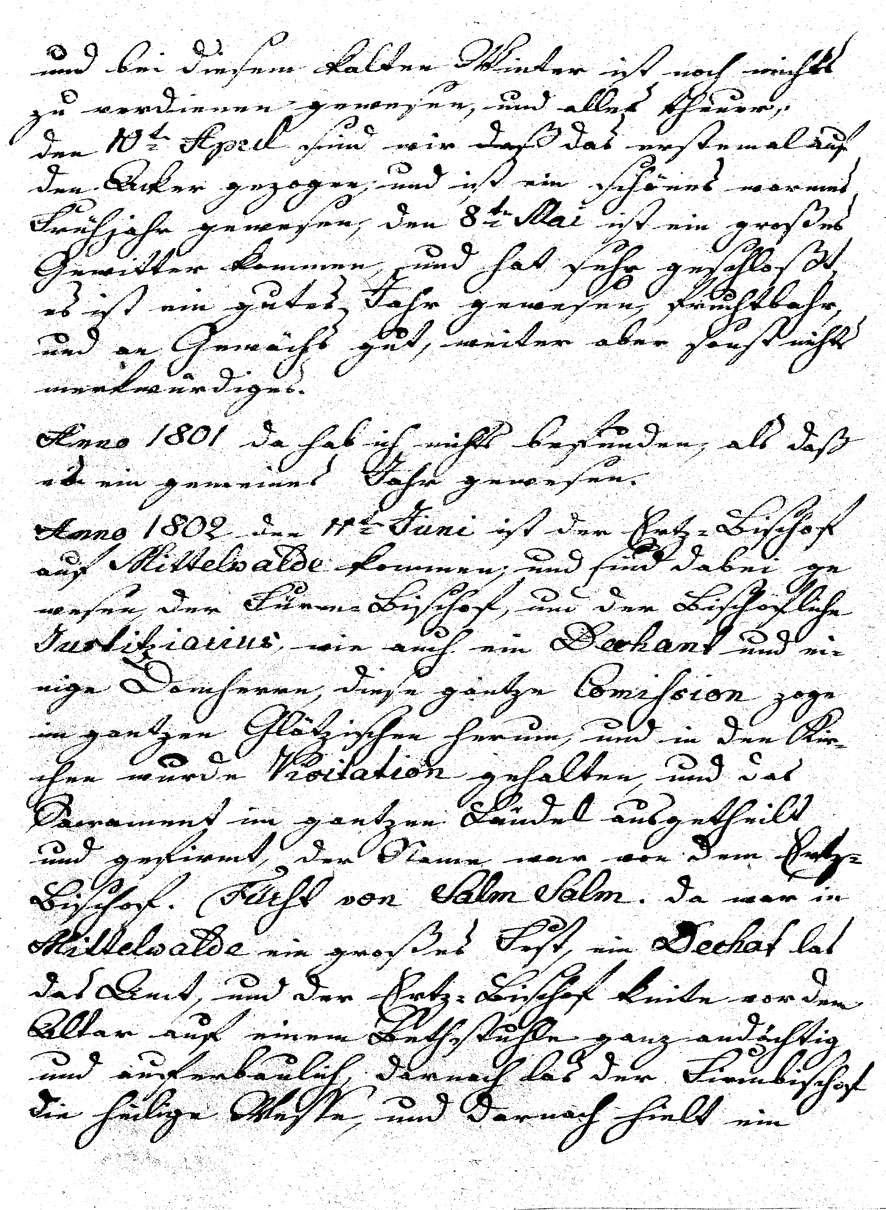 und bei diesem kalten Winter ist noch nichts
zu verdienen gewesen, und alles theuer,
den 10t April sind wir daß das erstemal auf
den Acker gezogen, und ist ein schönes warmes
Frühjahr gewesen, den 8t Mai ist ein großes
Gewitter kommen, und hat sehr geschloßt,
es ist ein gutes Jahr gewesen, fruchtbahr,
und an Gewächs gut, weiter aber sonst nichts
merkwürdiges.
Anno 1801 da hab ich nichts befunden, als daß
es ein gemeines Jahr gewesen.
Anno 1802 den 11t Juni ist der Ertz=Bischof
auf Mittelwalde kommen, und sind dabei ge
wesen, der Bischof, und der Bischöfliche
Justitziarius, wie auch ein Dechant und ei=
nige Domherrn, diese gantze Comission zoge
im gantzen Glätzischen herum, und in den Kir=
chen wurde Visitation gehalten, und das
Sacrament im gantzen Ländel ausgetheilt
und gefirmt, der Name war von dem Ertz=
Bischof. Fürst von Salm Salm. da war in
Mittelwalde ein großes Fest, ein Dechat las
das Amt, und der Ertz=Bischof knite vor dem
Altar auf einem Bethstuhle ganz andächtig
und auferbaulich, darnach las der Firmbischof
die heilige Messe, und darnach hielt ein